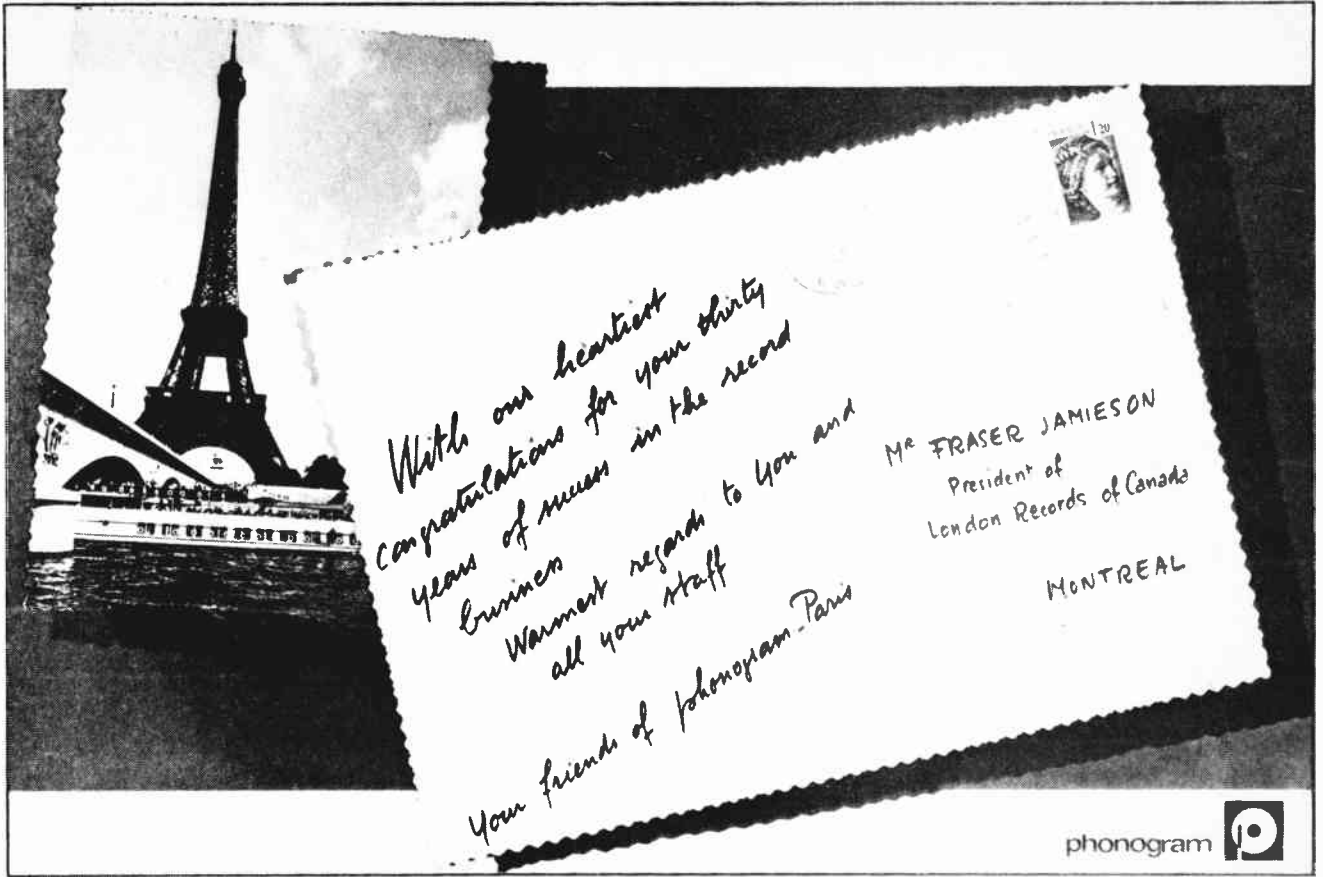 With our heartiest
congratulations for your thirty
years of success in the record
business
Warmest regards to you and
all your staff
Your friends of phonogram-Paris
1,20
MR FRASER JAMIESON
President of
London Records of Canada
MONTREAL
phonogram